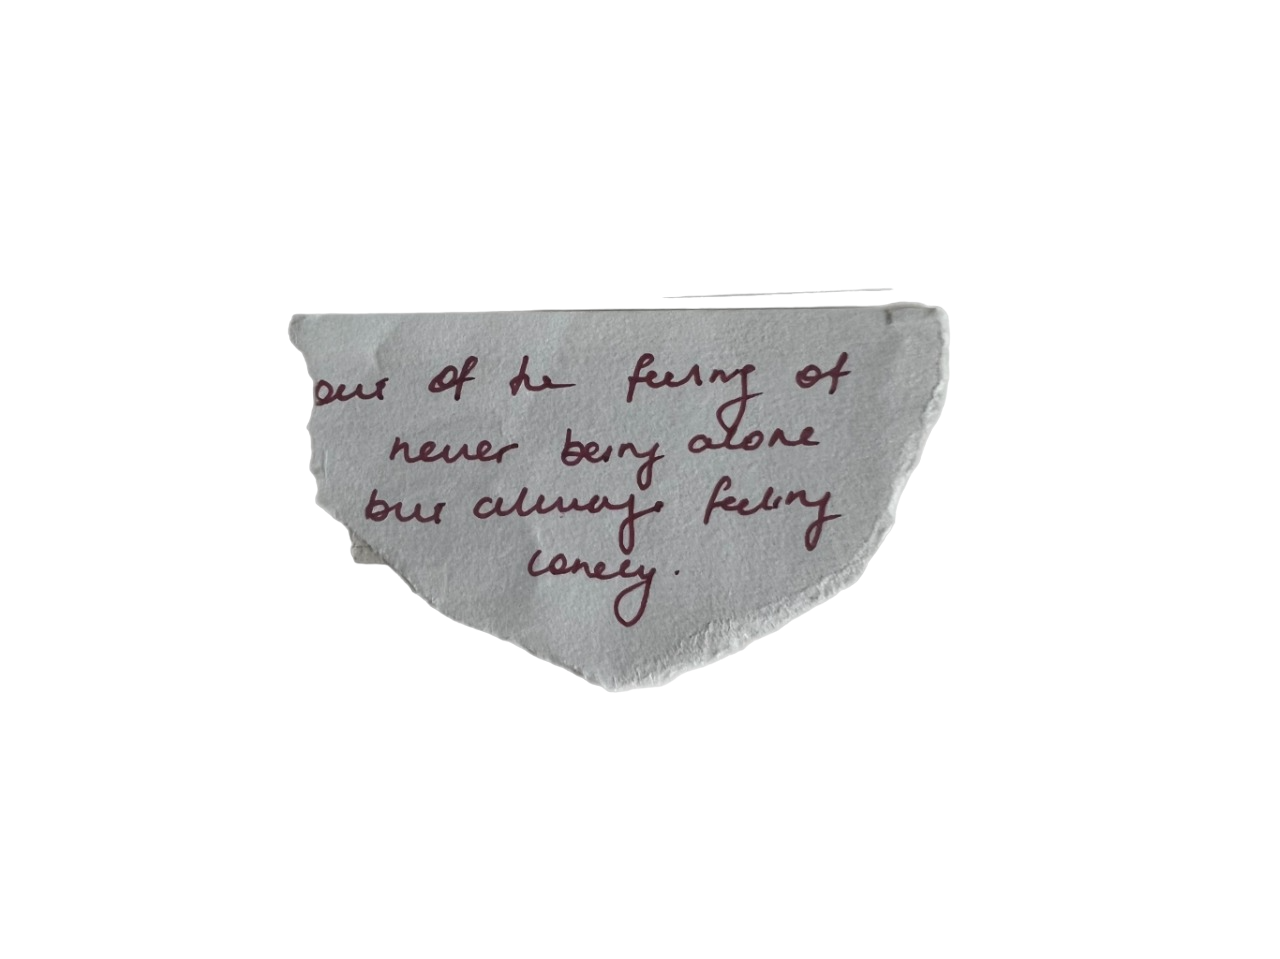 out of the feeling of
never being alone
but always feeling
lonely.